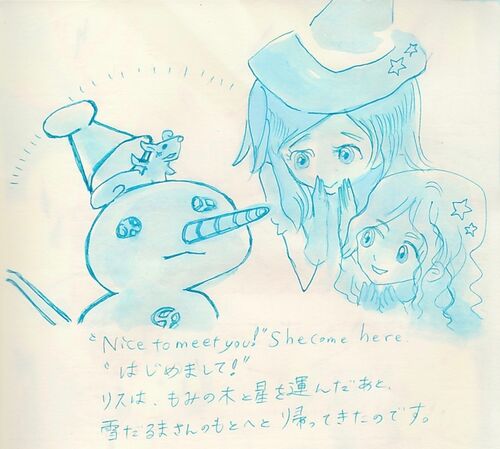 "Nice to meet you!" She come here.
"はじめまして!"
リスは、もみの木と星を運んだあと、
雪だるまさんのもとへと帰ってきたのです。